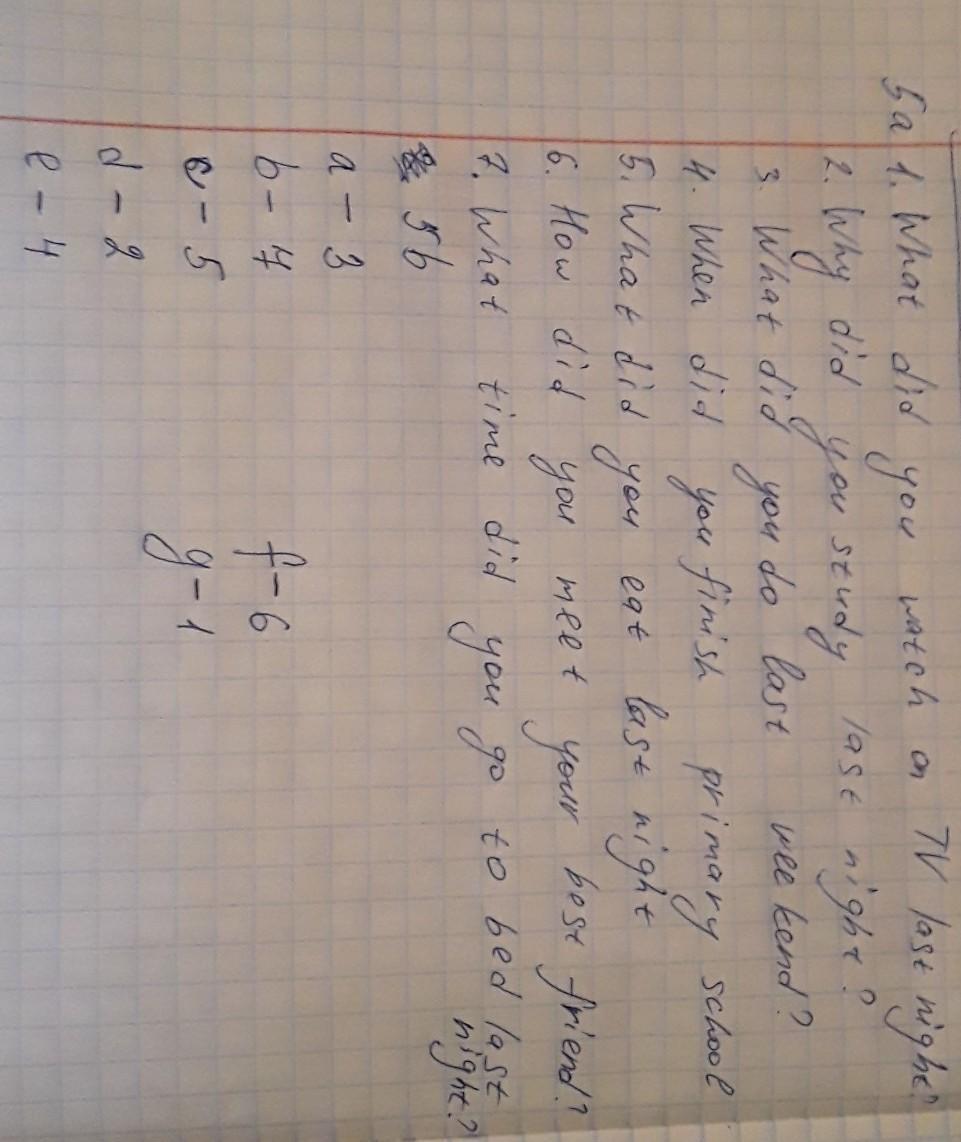 5a 1. What did you watch on TV last night?
2. Why did you study last night?
3. What did you do last weekend?
4. When did you finish primary school
5. What did you eat last night
6. How did you meet your best friend?
7. What time did you go to bed last
night?
5b
a - 3
b - 7 f - 6
c - 5 g - 1
d - 2
e - 4